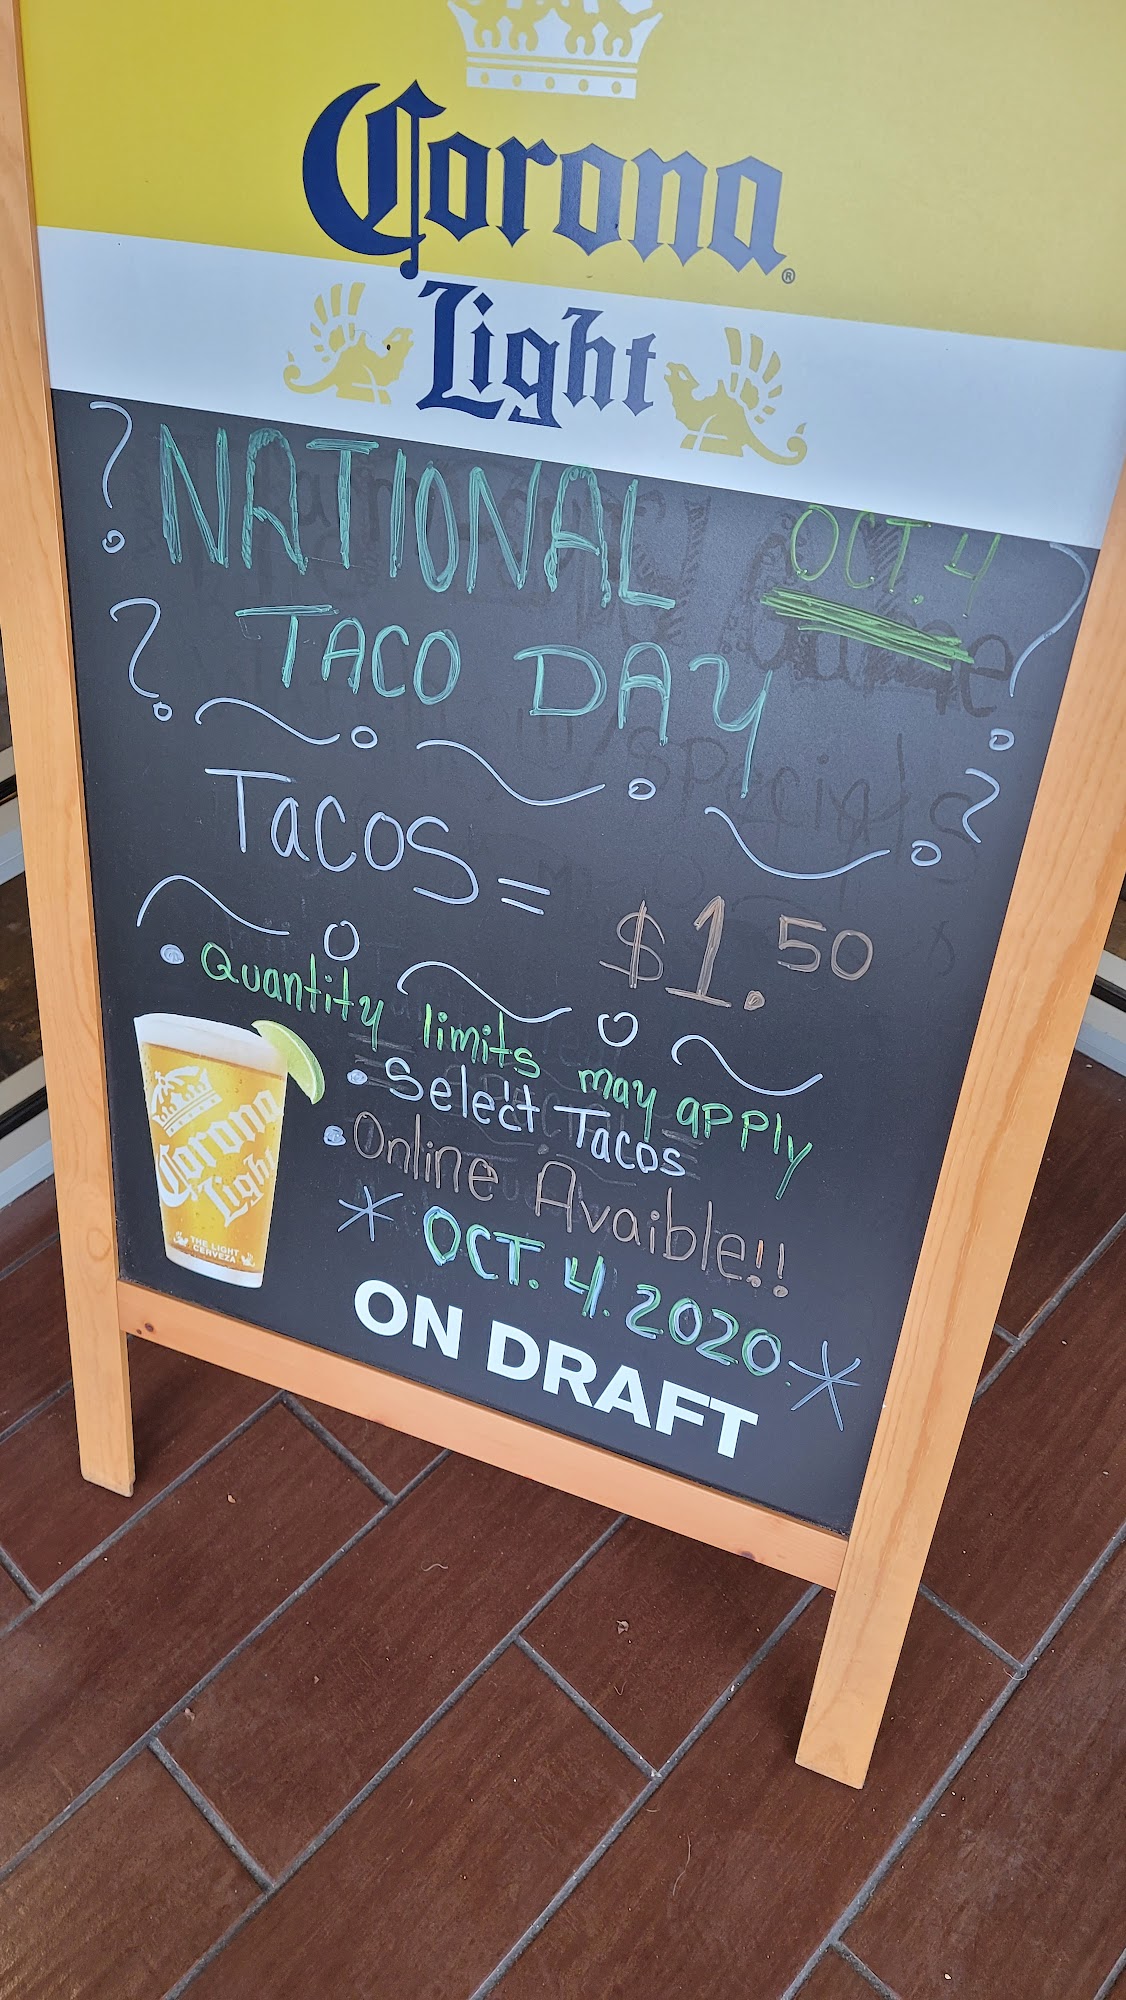 Corona®
Light
NATIONAL OCT. 4
TACO DAY
Tacos = $1.50
• Quantity limits may apply
• Select Tacos
• Online Avaible!!
* OCT. 4. 2020. *
ON DRAFT
Corona
Light
THE LIGHT
CERVEZA